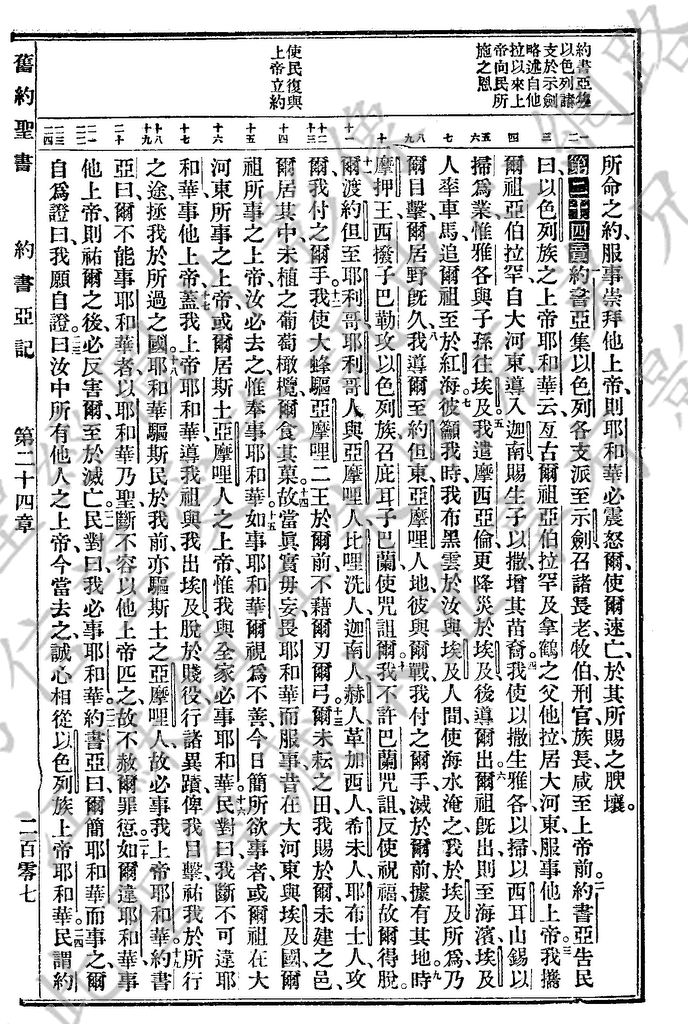 約書亞集
以色列諸
支於示劍
略述自他
拉以來上
帝向民所
施之恩
使民復與
上帝立約
所命之約、服事崇拜他上帝、則耶和華必震怒爾、使爾速亡、於其所賜之腴壤。
第二十四章 約書亞集以色列各支派至示劍、召諸長老牧伯刑官族長咸至上帝前。二約書亞告民
曰、以色列族之上帝耶和華云、亙古爾祖亞伯拉罕及拿鶴之父他拉居大河東、服事他上帝。三我攜
爾祖亞伯拉罕自大河東、導入迦南、賜生子以撒、增其苗裔。四我使以撒生雅各以掃、以西耳山錫以
掃為業、惟雅各與子孫往埃及。五我遣摩西亞倫、更降災於埃及、後導爾出。六爾祖既出、則至海濱、埃及
人率車馬追爾祖至於紅海。七彼籲我時、我布黑雲於汝與埃及人間、使海水淹之、我於埃及所為、乃
爾目擊、爾居野既久。八我導爾至約但東、亞摩哩人地、彼與爾戰、我付之爾手、滅於爾前、據有其地。九時
摩押王西撥子巴勒攻以色列族、召庇耳子巴蘭、使咒詛爾。十我不許巴蘭咒詛、反使祝福、故爾得脫。
十一爾渡約但至耶利哥、耶利哥人與亞摩哩人、比哩洗人、迦南人、赫人、革加西人、希未人、耶布士人、攻
爾、我付之爾手。十二我使大蜂驅亞摩哩二王於爾前、不藉爾刃爾弓。十三爾未耘之田、我賜於爾、未建之邑、
爾居其中、未植之葡萄橄欖、爾食其菓。十四故當真實毋妄、畏耶和華而服事、昔在大河東與埃及國、爾
祖所事之上帝、汝必去之、惟奉事耶和華。十五如事耶和華、爾視為不善、今日簡所欲事者、或爾祖在大
河東所事之上帝、或爾居斯土亞摩哩人之上帝、惟我與全家必事耶和華。十六民對曰、我斷不可違耶
和華、事他上帝。十七蓋我上帝耶和華導我祖與我出埃及、脫於賤役、行諸異蹟、俾我目擊、祐我於所行
之途、拯我於所過之國。十八耶和華驅斯民於我前、亦驅斯土之亞摩哩人、故必事我上帝耶和華。十九約書
亞曰、爾不能事耶和華者、以耶和華乃聖、斷不容以他上帝匹之、故不赦爾罪愆。二十如爾違耶和華、事
他上帝、則祐爾之後、必反害爾、至於滅亡。二一民對曰、我必事耶和華。二二約書亞曰、爾簡耶和華而事之、爾
自為證、曰、我願自證。二三曰、汝中所有他人之上帝、今當去之、誠心相從以色列族上帝耶和華。二四民謂約
一二
三
四
五六
七
八九
十
十一
十二十三
十四
十五
十六
十七
十八十九
二十
二一二二
二三二四
舊約聖書 約書亞記 第二十四章 二百零七